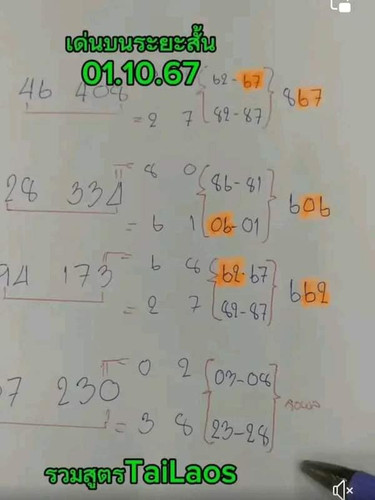 เด่นบนระยะสั้น
01.10.67
62-67
46 408 867
= 2 7 82-87
8 0 86-81
28 334 606
= 6 1 06-01
6 8 62-67
94 173 662
= 2 7 82-87
0 2 03-08
7 230
= 3 8 23-28
รวมสูตรTaiLaos